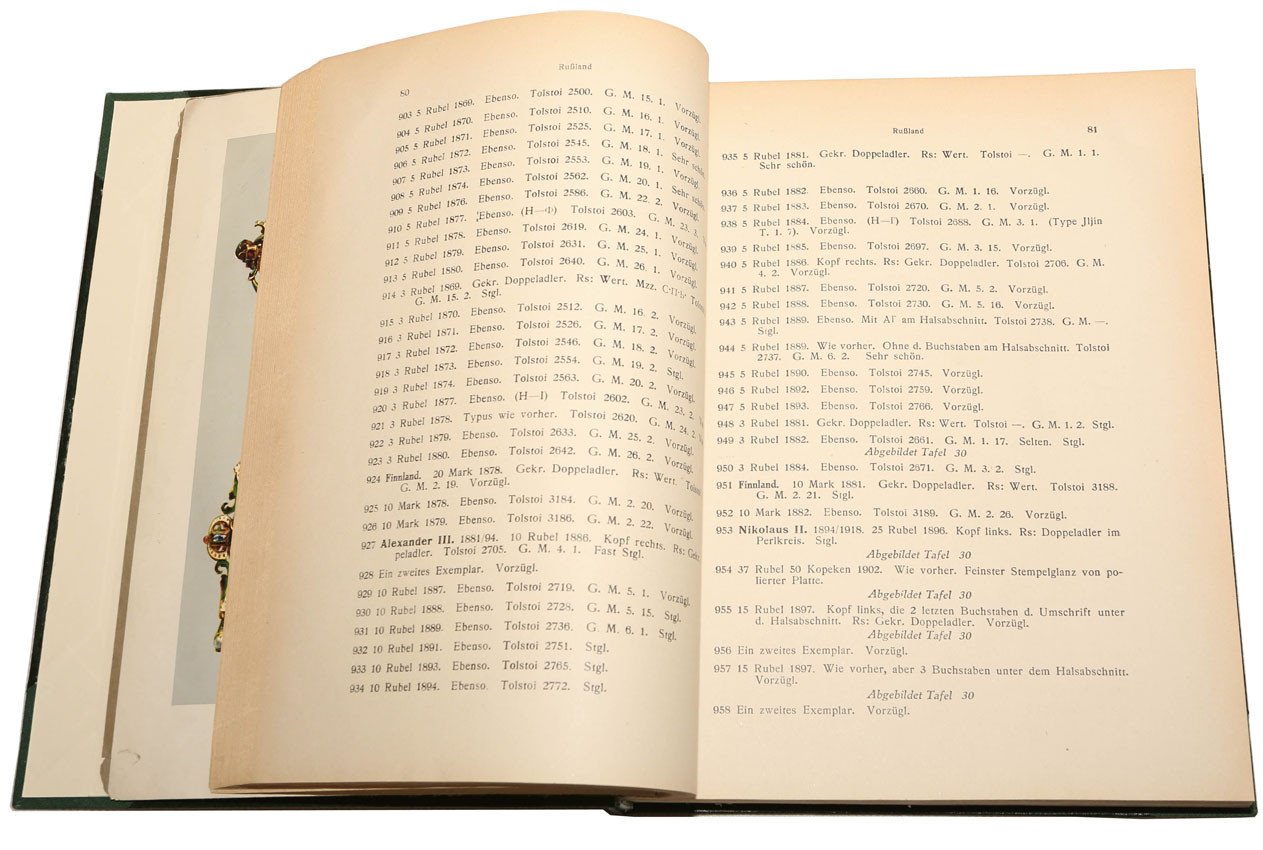 Rußland
80
903 5 Rubel 1869. Ebenso. Tolstoi 2500. G. M. 15. 1. Vorzügl.
904 5 Rubel 1870. Ebenso. Tolstoi 2510. G. M. 16. 1. Vorzügl.
905 5 Rubel 1871. Ebenso. Tolstoi 2525. G. M. 17. 1. Vorzügl.
906 5 Rubel 1872. Ebenso. Tolstoi 2545. G. M. 18. 1. Sehr schön.
907 5 Rubel 1873. Ebenso. Tolstoi 2553. G. M. 19. 1. Vorzügl.
908 5 Rubel 1874. Ebenso. Tolstoi 2562. G. M. 20. 1. Sehr schön.
909 5 Rubel 1876. Ebenso. Tolstoi 2586. G. M. 22. 2. Vorzügl.
910 5 Rubel 1877. Ebenso. (H—Ф) Tolstoi 2603. G. M. 23. 3.
911 5 Rubel 1878. Ebenso. Tolstoi 2619. G. M. 24. 1. Vorzügl.
912 5 Rubel 1879. Ebenso. Tolstoi 2631. G. M. 25. 1. Vorzügl.
913 5 Rubel 1880. Ebenso. Tolstoi 2640. G. M. 26. 1. Vorzügl.
914 3 Rubel 1869. Gekr. Doppeladler. Rs: Wert. Mzz.
G. M. 15. 2. Stgl.
915 3 Rubel 1870. Ebenso. Tolstoi 2512. G. M. 16. 2. Vorzügl.
916 3 Rubel 1871. Ebenso. Tolstoi 2526. G. M. 17. 2. Vorzügl.
917 3 Rubel 1872. Ebenso. Tolstoi 2546. G. M. 18. 2. Vorzügl.
918 3 Rubel 1873. Ebenso. Tolstoi 2554. G. M. 19. 2. Stgl.
919 3 Rubel 1874. Ebenso. Tolstoi 2563. G. M. 20. 2. Vorzügl.
920 3 Rubel 1877. Ebenso. (H—I) Tolstoi 2602. G. M. 23. 2.
921 3 Rubel 1878. Typus wie vorher. Tolstoi 2620. G. M. 24. 2.
922 3 Rubel 1879. Ebenso. Tolstoi 2633. G. M. 25. 2. Vorzügl.
923 3 Rubel 1880. Ebenso. Tolstoi 2642. G. M. 26. 2. Vorzügl.
924 Finnland. 20 Mark 1878. Gekr. Doppeladler. Rs: Wert.
G. M. 2. 19. Vorzügl.
925 10 Mark 1878. Ebenso. Tolstoi 3184. G. M. 2. 20. Vorzügl.
926 10 Mark 1879. Ebenso. Tolstoi 3186. G. M. 2. 22. Vorzügl.
927 Alexander III. 1881/94. 10 Rubel 1886. Kopf rechts. Rs: Gekr.
peladler. Tolstoi 2705. G. M. 4. 1. Fast Stgl.
928 Ein zweites Exemplar. Vorzügl.
929 10 Rubel 1887. Ebenso. Tolstoi 2719. G. M. 5. 1. Vorzügl.
930 10 Rubel 1888. Ebenso. Tolstoi 2728. G. M. 5. 15. Stgl.
931 10 Rubel 1889. Ebenso. Tolstoi 2736. G. M. 6. 1. Stgl.
932 10 Rubel 1891. Ebenso. Tolstoi 2751. Stgl.
933 10 Rubel 1893. Ebenso. Tolstoi 2765. Stgl.
934 10 Rubel 1894. Ebenso. Tolstoi 2772. Stgl.
Rußland 81
935 5 Rubel 1881. Gekr. Doppeladler. Rs: Wert. Tolstoi —. G. M. 1. 1.
Sehr schön.
936 5 Rubel 1882. Ebenso. Tolstoi 2660. G. M. 1. 16. Vorzügl.
937 5 Rubel 1883. Ebenso. Tolstoi 2670. G. M. 2. 1. Vorzügl.
938 5 Rubel 1884. Ebenso. (H—I) Tolstoi 2688. G. M. 3. 1. (Type Jljin
T. 1. 7). Vorzügl.
939 5 Rubel 1885. Ebenso. Tolstoi 2697. G. M. 3. 15. Vorzügl.
940 5 Rubel 1886. Kopf rechts. Rs: Gekr. Doppeladler. Tolstoi 2706. G. M.
4. 2. Vorzügl.
941 5 Rubel 1887. Ebenso. Tolstoi 2720. G. M. 5. 2. Vorzügl.
942 5 Rubel 1888. Ebenso. Tolstoi 2730. G. M. 5. 16. Vorzügl.
943 5 Rubel 1889. Ebenso. Mit АГ am Halsabschnitt. Tolstoi 2738. G. M. —.
Stgl.
944 5 Rubel 1889. Wie vorher. Ohne d. Buchstaben am Halsabschnitt. Tolstoi
2737. G. M. 6. 2. Sehr schön.
945 5 Rubel 1890. Ebenso. Tolstoi 2745. Vorzügl.
946 5 Rubel 1892. Ebenso. Tolstoi 2759. Vorzügl.
947 5 Rubel 1893. Ebenso. Tolstoi 2766. Vorzügl.
948 3 Rubel 1881. Gekr. Doppeladler. Rs: Wert. Tolstoi —. G. M. 1. 2. Stgl.
949 3 Rubel 1882. Ebenso. Tolstoi 2661. G. M. 1. 17. Selten. Stgl.
Abgebildet Tafel 30
950 3 Rubel 1884. Ebenso. Tolstoi 2671. G. M. 3. 2. Stgl.
951 Finnland. 10 Mark 1881. Gekr. Doppeladler. Rs: Wert. Tolstoi 3188.
G. M. 2. 21. Stgl.
952 10 Mark 1882. Ebenso. Tolstoi 3189. G. M. 2. 26. Vorzügl.
953 Nikolaus II. 1894/1918. 25 Rubel 1896. Kopf links. Rs: Doppeladler im
Perlkreis. Stgl.
Abgebildet Tafel 30
954 37 Rubel 50 Kopeken 1902. Wie vorher. Feinster Stempelglanz von po-
lierter Platte.
Abgebildet Tafel 30
955 15 Rubel 1897. Kopf links, die 2 letzten Buchstaben d. Umschrift unter
d. Halsabschnitt. Rs: Gekr. Doppeladler. Vorzügl.
Abgebildet Tafel 30
956 Ein zweites Exemplar. Vorzügl.
957 15 Rubel 1897. Wie vorher, aber 3 Buchstaben unter dem Halsabschnitt.
Vorzügl.
Abgebildet Tafel 30
958 Ein zweites Exemplar. Vorzügl.